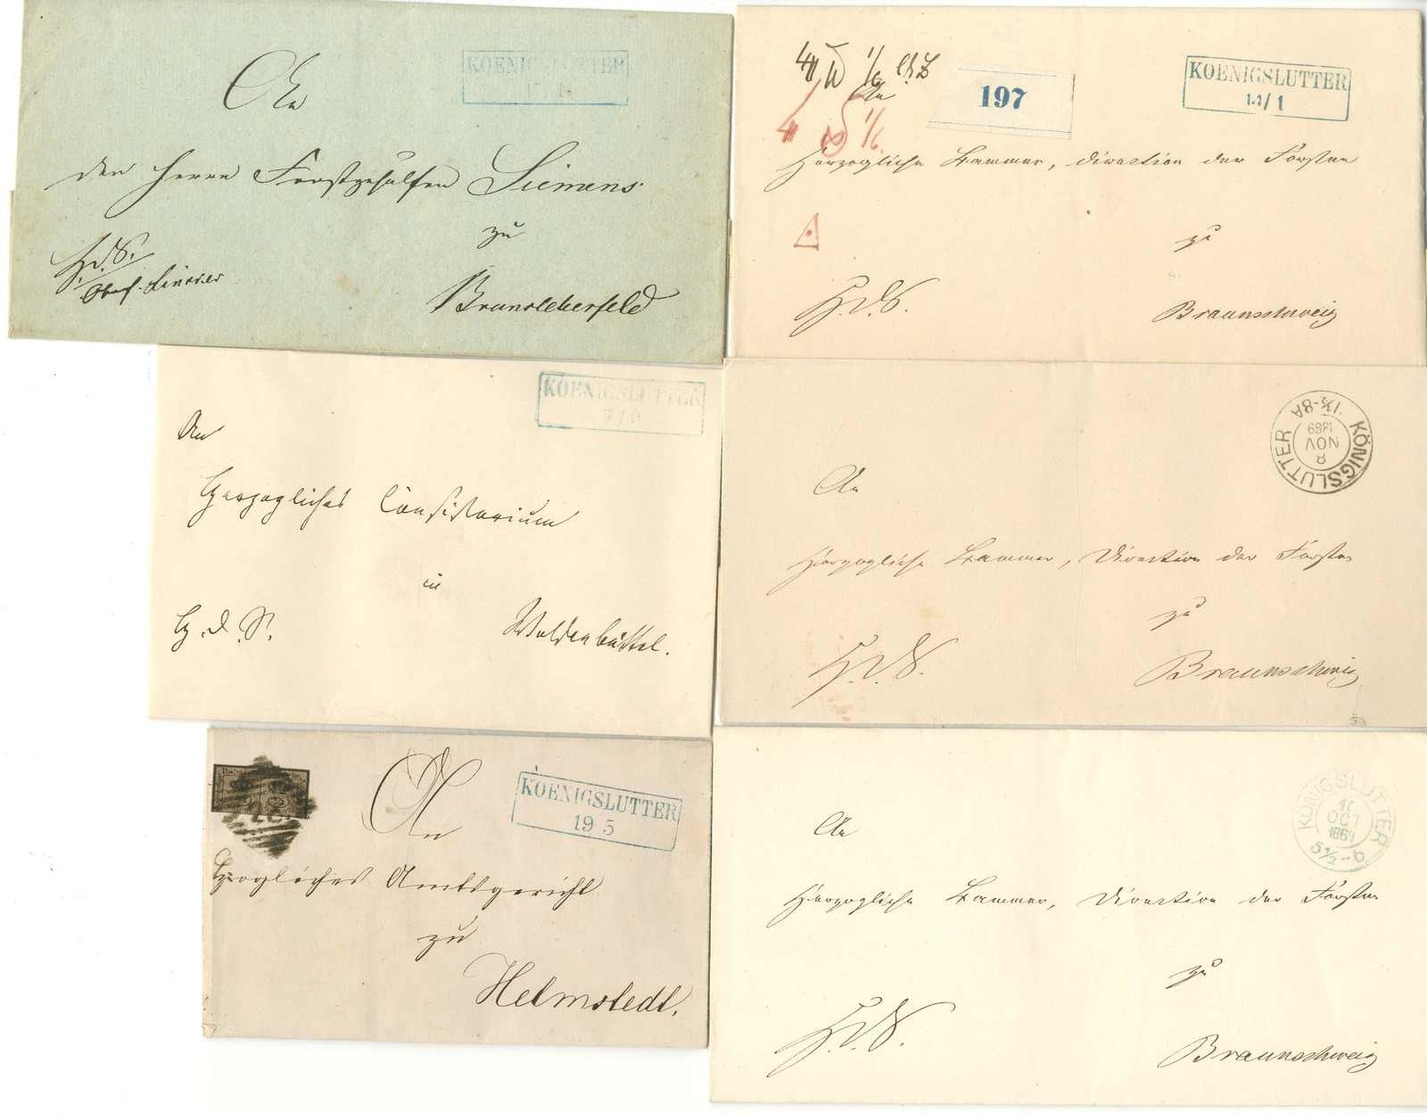 KOENIGSLUTTER
An
den Herrn Forstgehülfen Siemens
zu
H.d.S.
Brunsleberfeld
KOENIGSLUTTER
14/1
197
An
Herzogliche Kammer, Direction der Forsten
zu
H.d.S.
Braunschweig
KOENIGSLUTTER
An
Herzogliches Consistorium
in
H.d.S.
Wolfenbüttel.
KÖNIGSLUTTER
8
NOV
1869
An
Herzogliche Kammer, Direction der Forsten
zu
H.d.S.
Braunschweig
KOENIGSLUTTER
19 5
An
Herzogliches Amtsgericht
zu
Helmstedt.
KÖNIGSLUTTER
10
OCT
1869
5½-6
An
Herzogliche Kammer, Direction der Forsten
zu
H.d.S.
Braunschweig